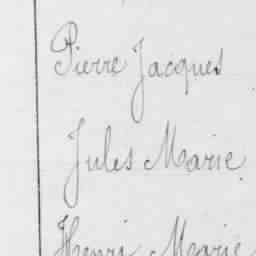 Pierre Jacques
Jules Marie
Henri Marie